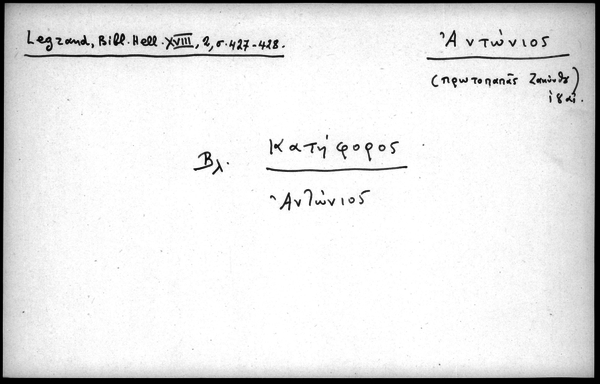 Legrand, Bibl. Hell. XVIII, 2, σ. 427-428.
Ἀντώνιος
(πρωτοπαπᾶς Ζακύνθου)
ι8 αἰ.
Βλ. Κατήφορος
Ἀντώνιος